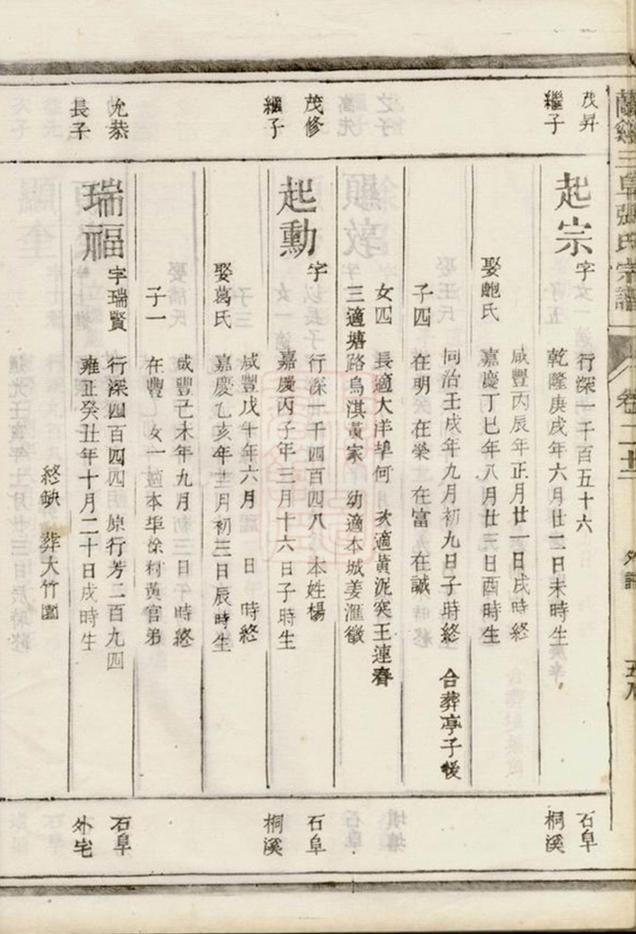 蘭谿三阜張氏宗譜 卷二十三 外譜
茂昇
繼子
起宗
字 行深一千百五十六
乾隆庚戌年六月廿二日未時生
咸豐丙辰年正月廿一日戌時終
娶鮑氏
嘉慶丁巳年八月廿三日酉時生
同治壬戌年九月初九日子時終 合葬亭子後
子四 在明 在榮 在富 在誠
女四 長適大洋埠何 次適黃泥突王連春
三適塘路烏淇黃家 幼適本城姜滙徵
石阜
桐溪
茂修
繼子
起勳
字 行深一千四百四八 本姓楊
嘉慶丙子年三月十六日子時生
咸豐戊午年六月 日 時終
娶葛氏
嘉慶乙亥年十二月初三日辰時生
咸豐己未年九月 日 時終
子一 在豐 女一適本埠徐柯黃官弟
石阜
桐溪
允恭
長子
瑞福
字瑞賢 行深四百四四 原行芳二百九四
雍正癸丑年十月二十日戌時生
終缺 葬大竹園
石阜
外宅